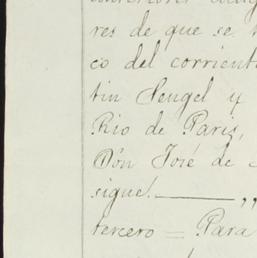 res de que se
co del corriente
tin Sengel y
Rio de Paris,
Dón José de
sigue! ——— ,,
tercero = Para